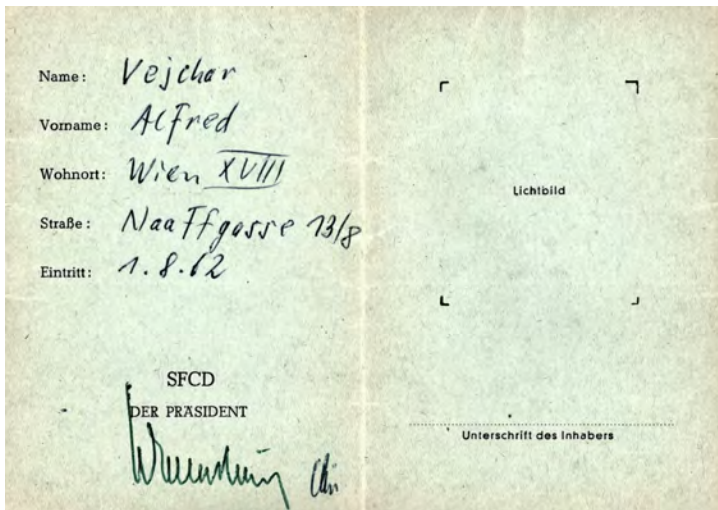 Name: Vejchar
Vorname: Alfred
Wohnort: Wien XVIII
Straße: Naaffgasse 13/8
Eintritt: 1.8.62
SFCD
DER PRÄSIDENT
Lichtbild
Unterschrift des Inhabers